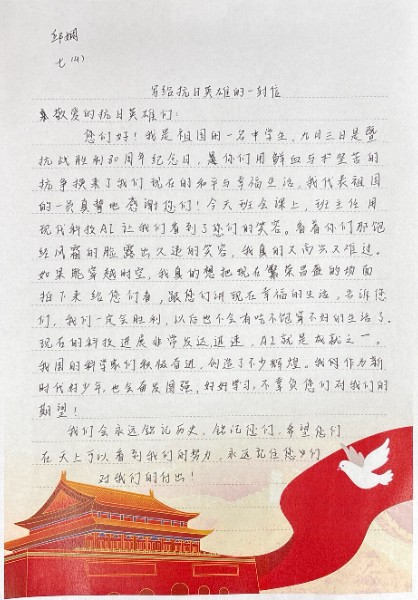 邱娴
七(4)
写给抗日英雄的一封信
敬爱的抗日英雄们:
您们好!我是祖国的一名中学生,九月三日是暨
抗战胜利80周年纪念日,是你们用鲜血与艰苦的
抗争换来了我们现在的和平与幸福生活,我代表祖国
的一员真挚地感谢您们!今天班会课上,班主任用
现代科技AI让我们看到了您们的笑容。看着你们那饱
经风霜的脸露出久违的笑容,我真的又高兴又难过。
如果能穿越时空,我真的想把现在繁荣昌盛的场面
拍下来给您们看,跟您们讲现在幸福的生活,告诉您
们,我们一定会胜利,以后也不会有吃不饱穿不好的生活了。
现在的科技进展非常发达迅速,AI就是成就之一。
我国的科学家们积极奋进,创造了不少辉煌。我们作为新
时代好少年,也会奋发图强,好好学习,不辜负您们对我们的
期望!
我们会永远铭记历史,铭记您们,希望您们
在天上可以看到我们的努力,永远记住您们
对我们的付出!